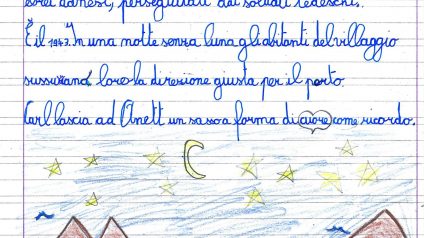 ebrei danesi, perseguitati dai soldati tedeschi.
È il 1943. In una notte senza luna gli abitanti del villaggio
sussurano loro la direzione giusta per il porto.
Carl lascia ad Anett un sasso a forma di cuore come ricordo.